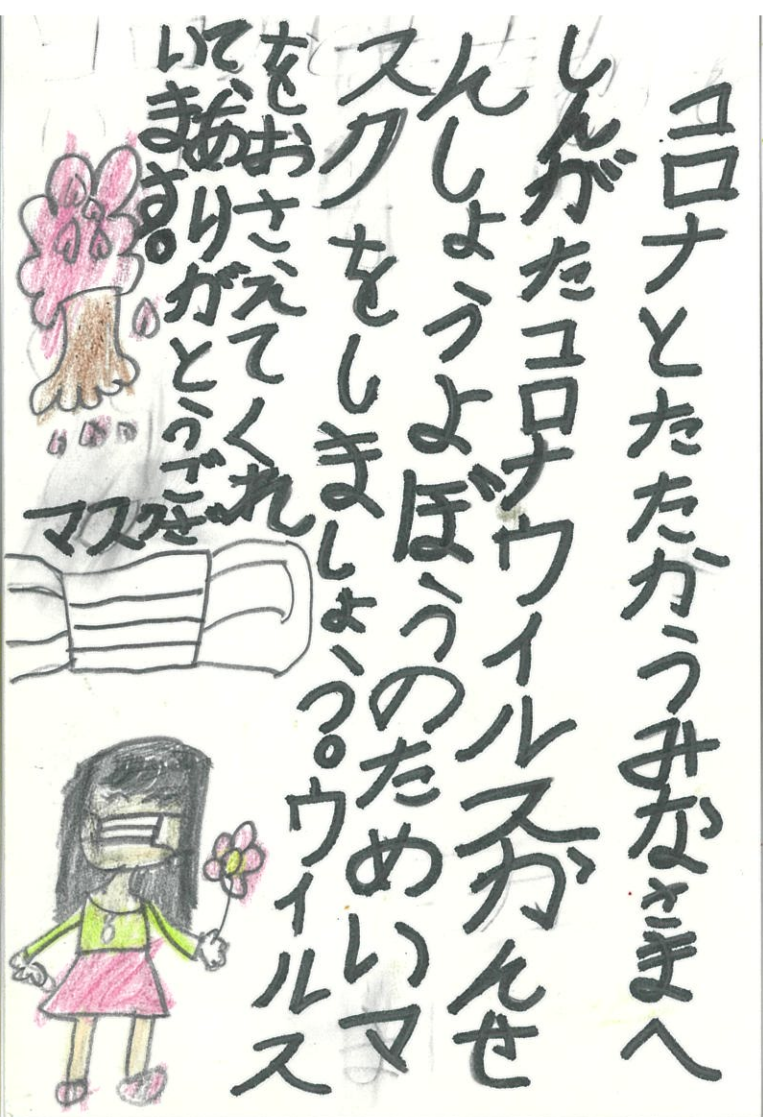 コロナとたたかうみなさまへ
しんがたコロナウイルスかんせ
んしょうよぼうのためいマ
スクをしましょう。ウイルス
をおさえてくれ
て、ありがとうござ
います。
マスク